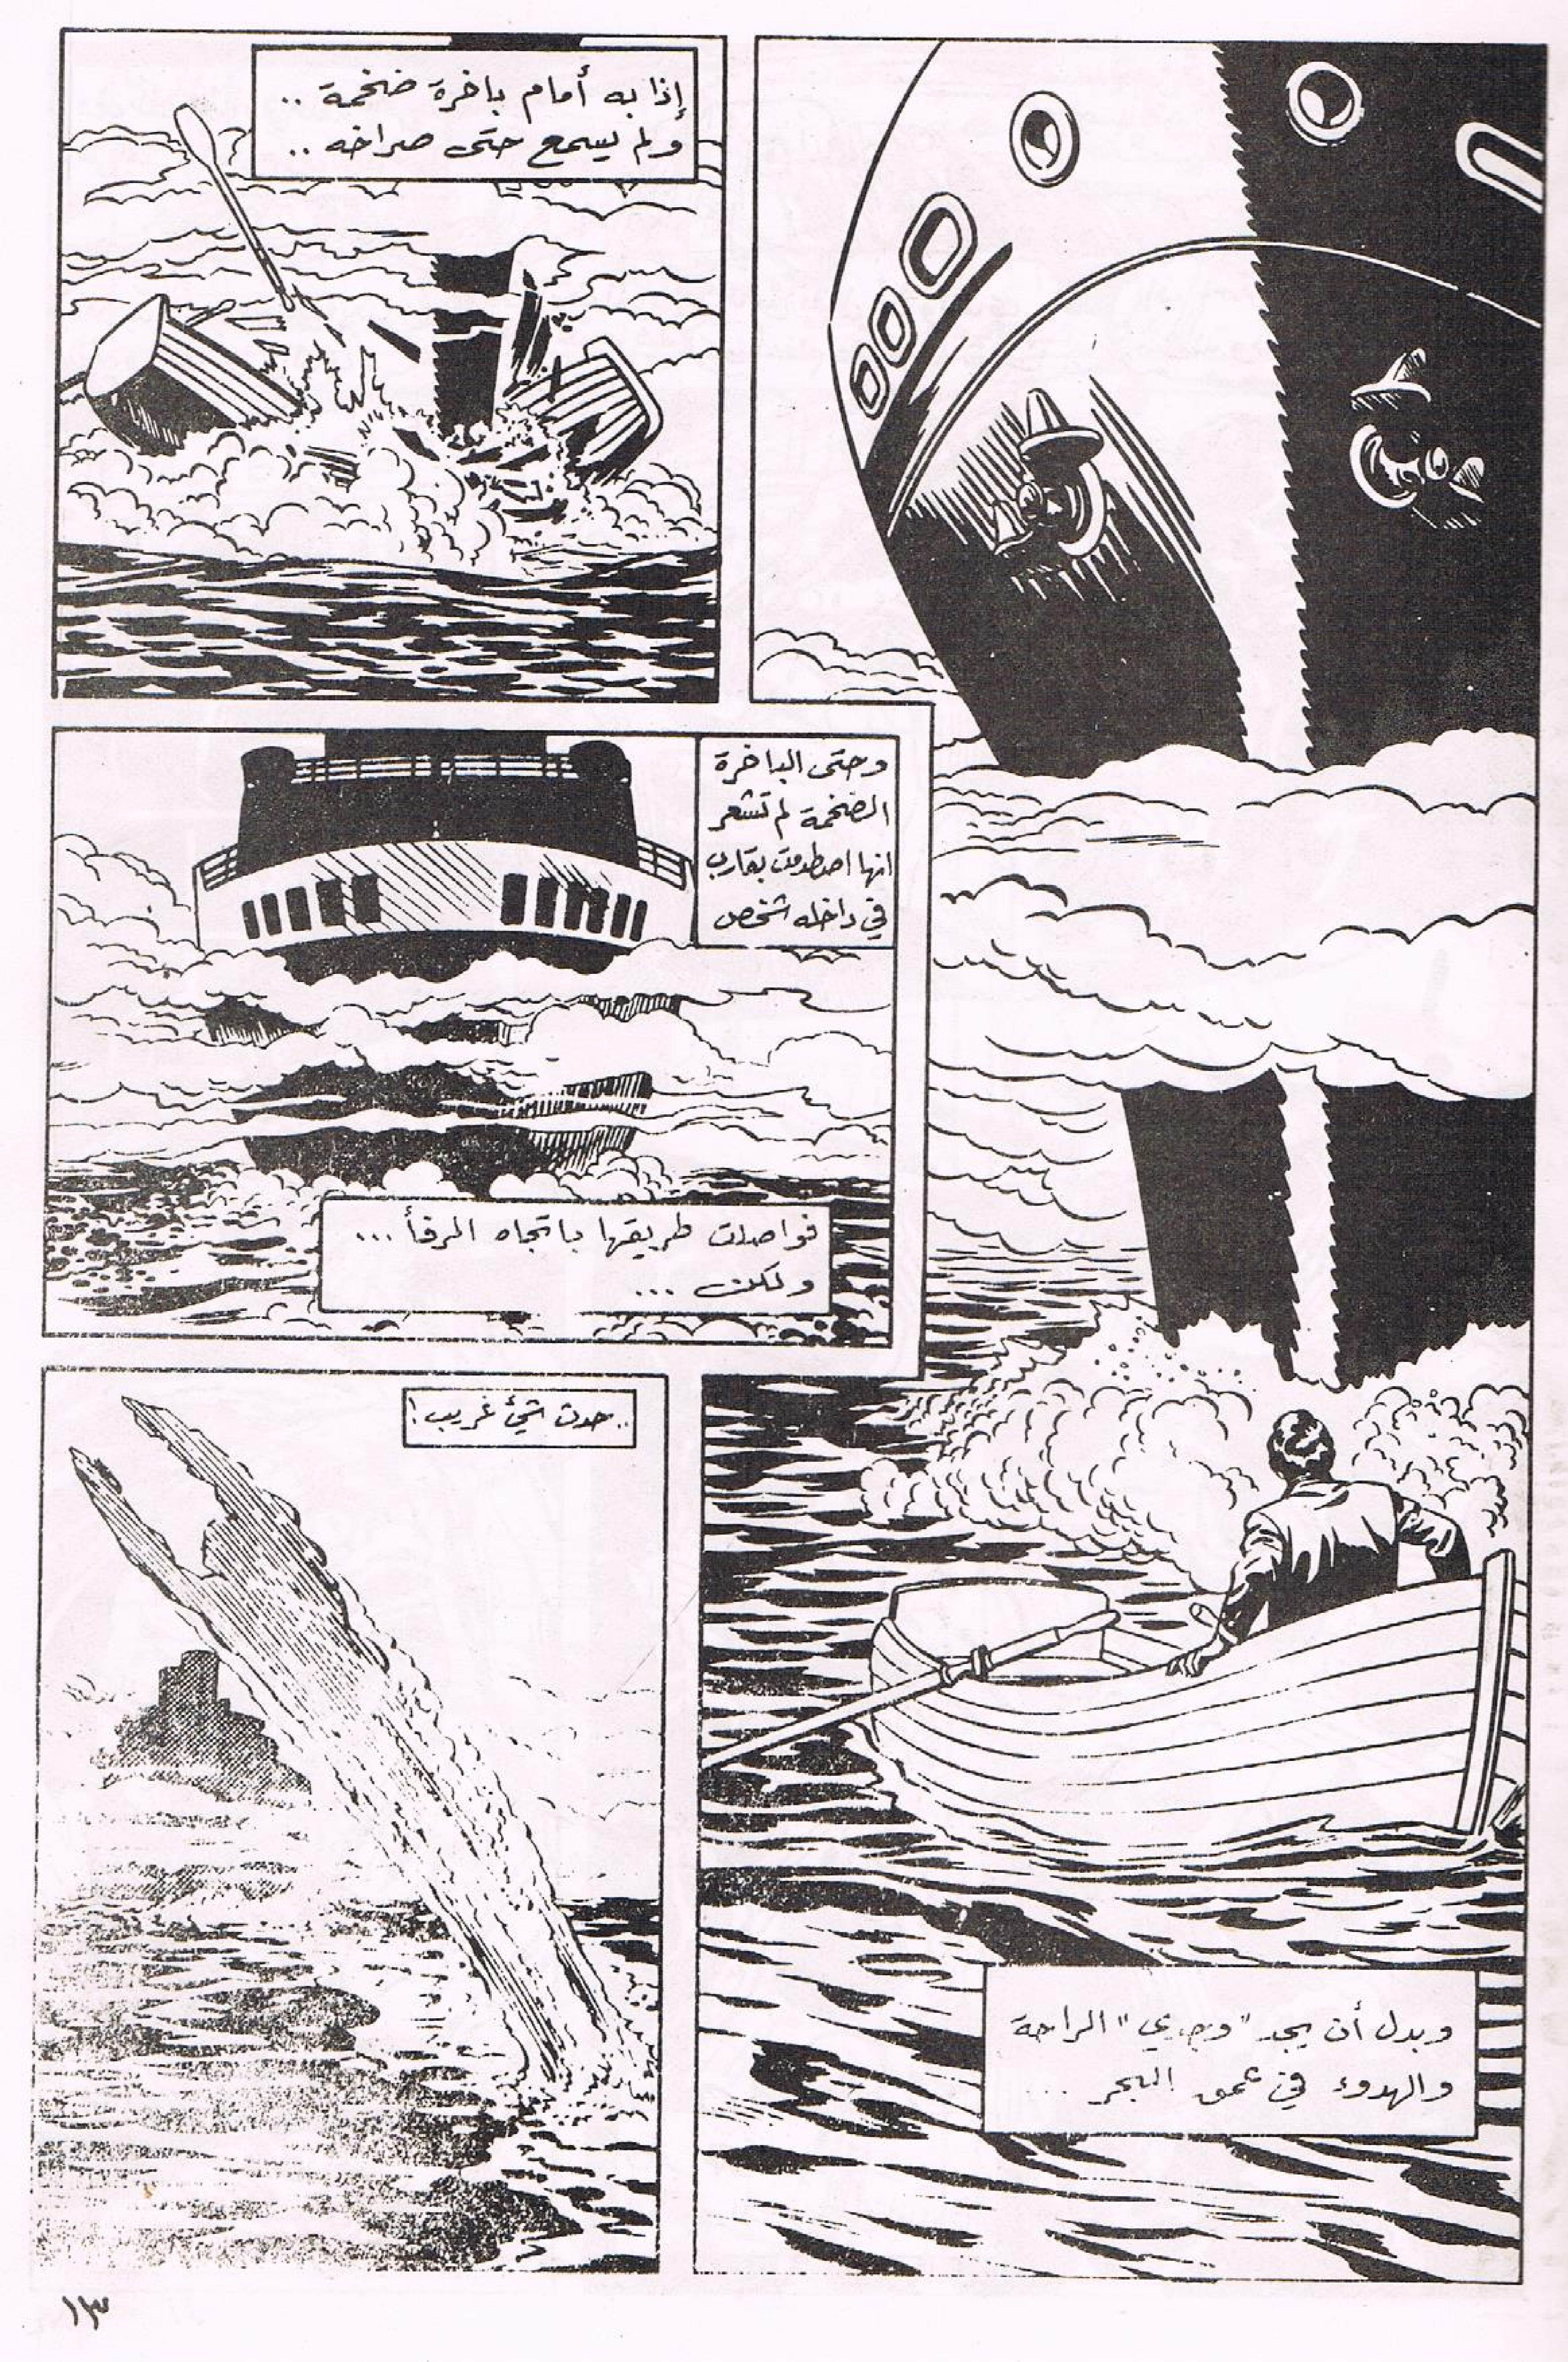 وبدل أن يجد "وجدي" الراحة
والهدوء في عمق البحر ...
إذا به أمام باخرة ضخمة ..
ولم يسمع حتى صراخه ..
وحتى الباخرة
الضخمة لم تشعر
انها اصطدمت بقارب
في داخله شخص
فواصلت طريقها باتجاه المرفأ ...
ولكن ...
.. حدث شئ غريب !
١٣